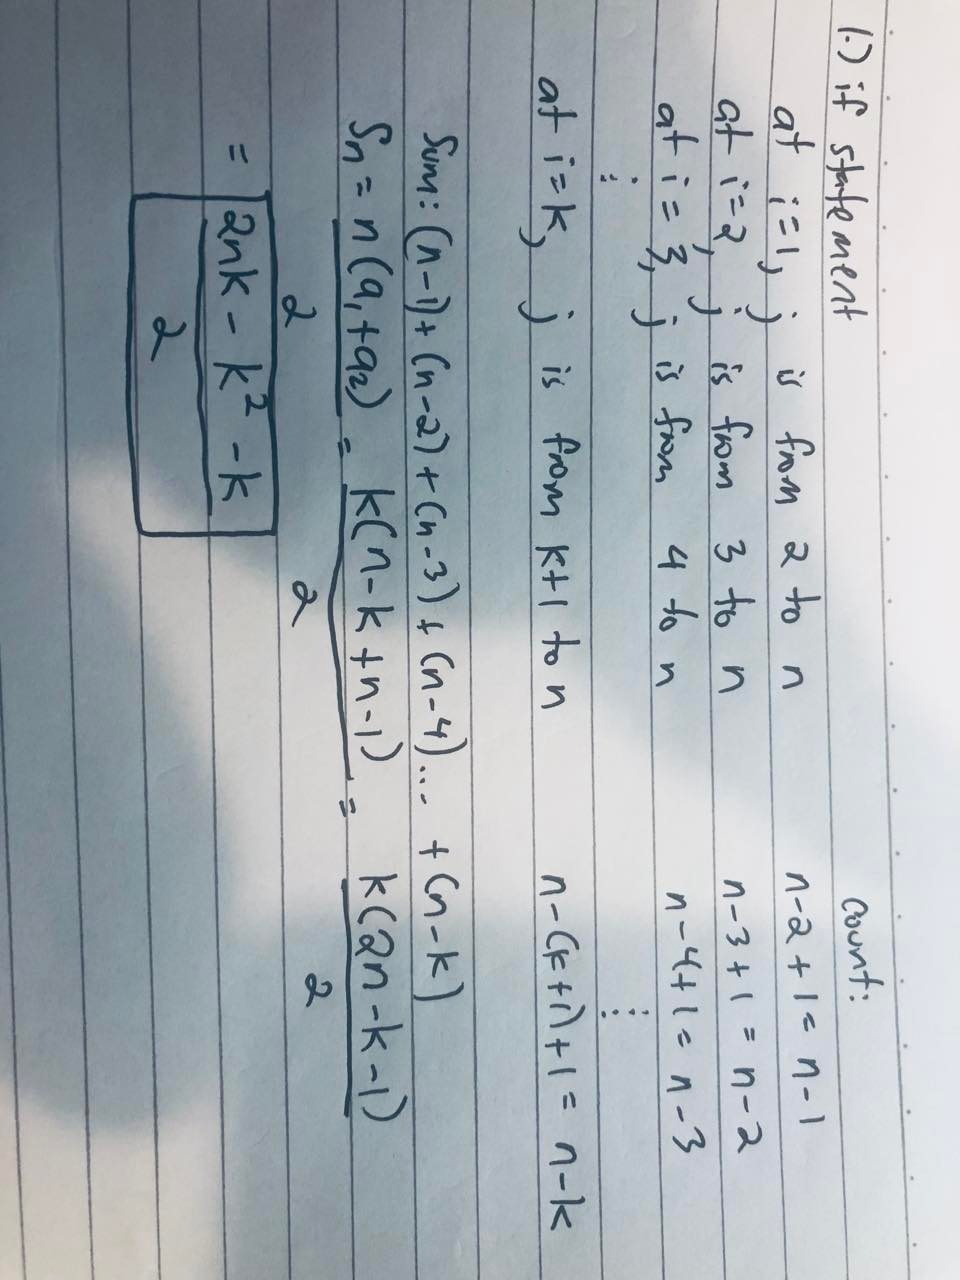 1.) if statement count:
at i=1, j is from 2 to n n-2+1= n-1
at i=2, j is from 3 to n n-3+1 = n-2
at i=3, j is from 4 to n n-4+1 = n-3
⋮ ⋮
at i=k, j is from k+1 to n n-(k+1)+1 = n-k
Sum: (n-1)+(n-2)+(n-3)+(n-4)... +(n-k)
Sn = n(a₁+a₂)/2 = k(n-k+n-1)/2 = k(2n-k-1)/2
= 2nk - k² - k/2